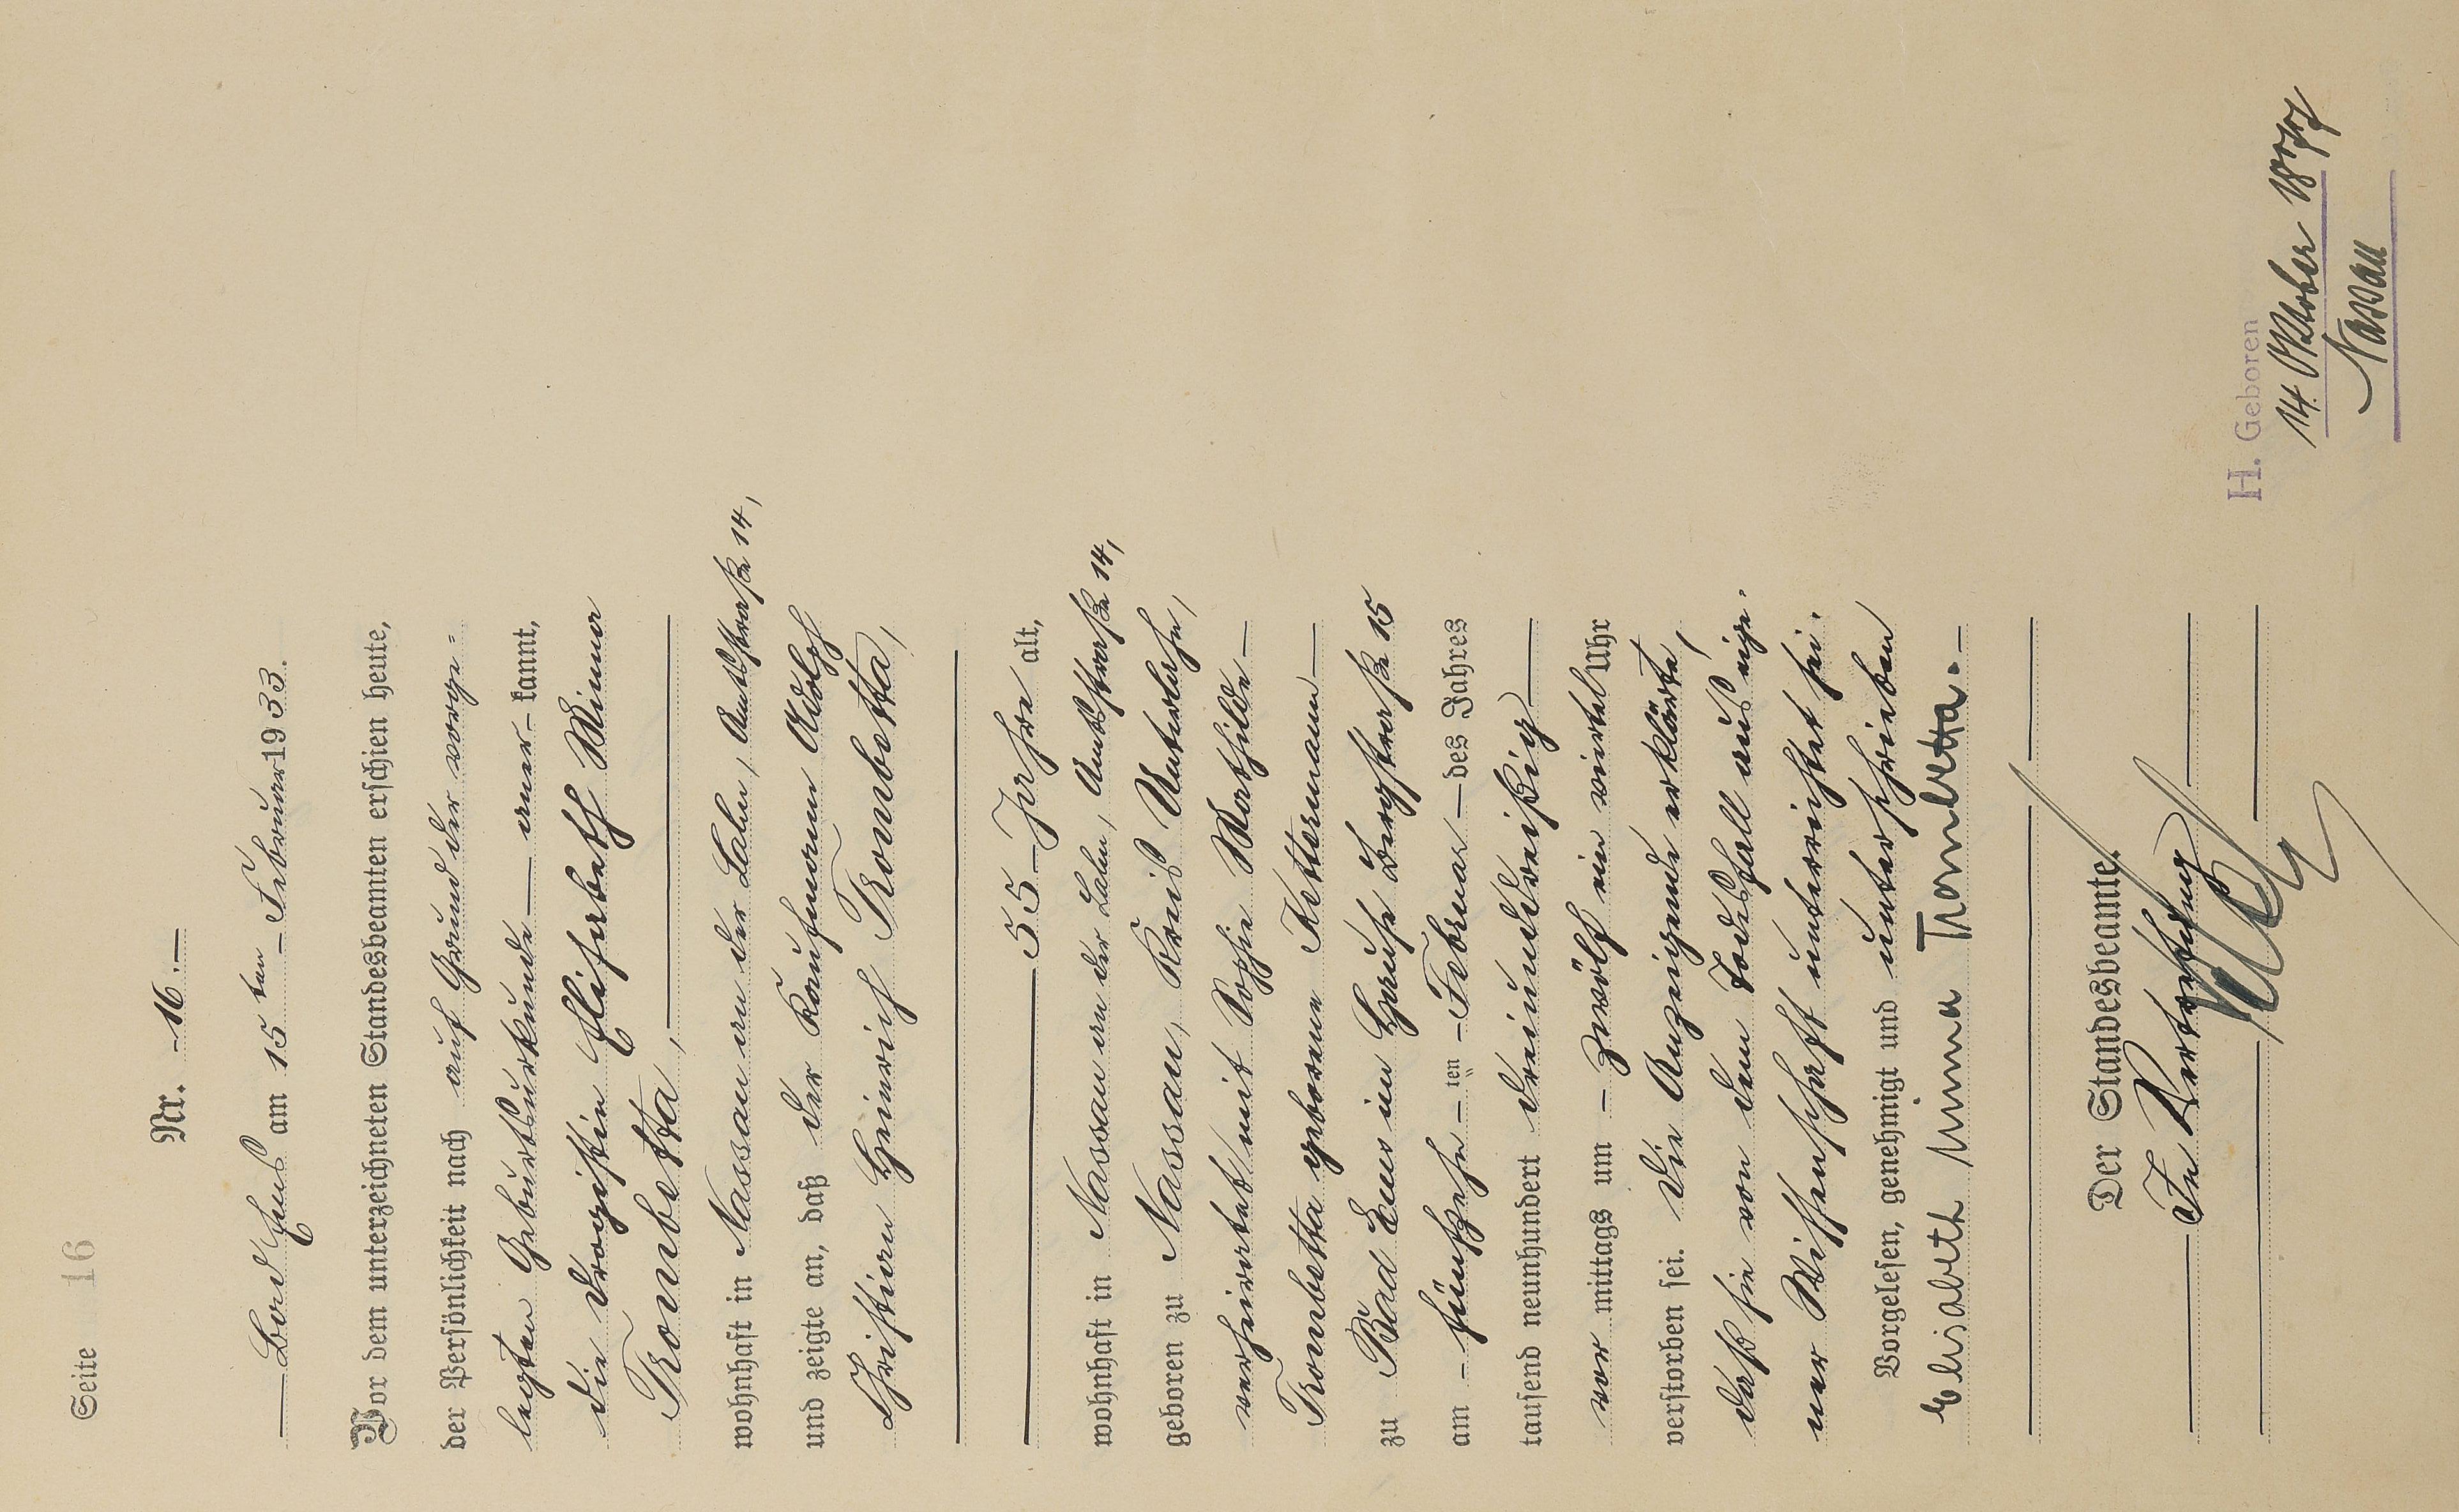 Seite 16
Nr. 16.
Bad Ems am 15ten Februar 1933.
Vor dem unterzeichneten Standesbeamten erschien heute,
der Persönlichkeit nach auf Grund der vorge=
legten Geburtsurkunde — aner- kannt,
die Drogistin Elisabeth Minna
Trombetta,
wohnhaft in Nassau an der Lahn, Amtsstraße 14,
und zeigte an, daß der Kaufmann Adolf
Christian Heinrich Trombetta,
55 Jahre alt,
wohnhaft in Nassau an der Lahn, Amtsstraße 14,
geboren zu Nassau, Kreis Unterlahn,
verheiratet mit Sophie Mathilde
Trombetta geborene Kettermann
zu Bad Ems im Hause Bergstraße 15
am - fünfzehn - ten - Februar - des Jahres
tausend neunhundert dreiunddreißig
vor mittags um - zwölf ein viertel Uhr
verstorben sei. Die Anzeigende erklärte,
daß sie von dem Todesfall aus eige-
ner Wissenschaft unterrichtet sei.
Vorgelesen, genehmigt und unterschrieben
Elisabeth Minna Trombetta.
Der Standesbeamte.
In Vertretung
H. Geboren
14. Oktober 1877
Nassau